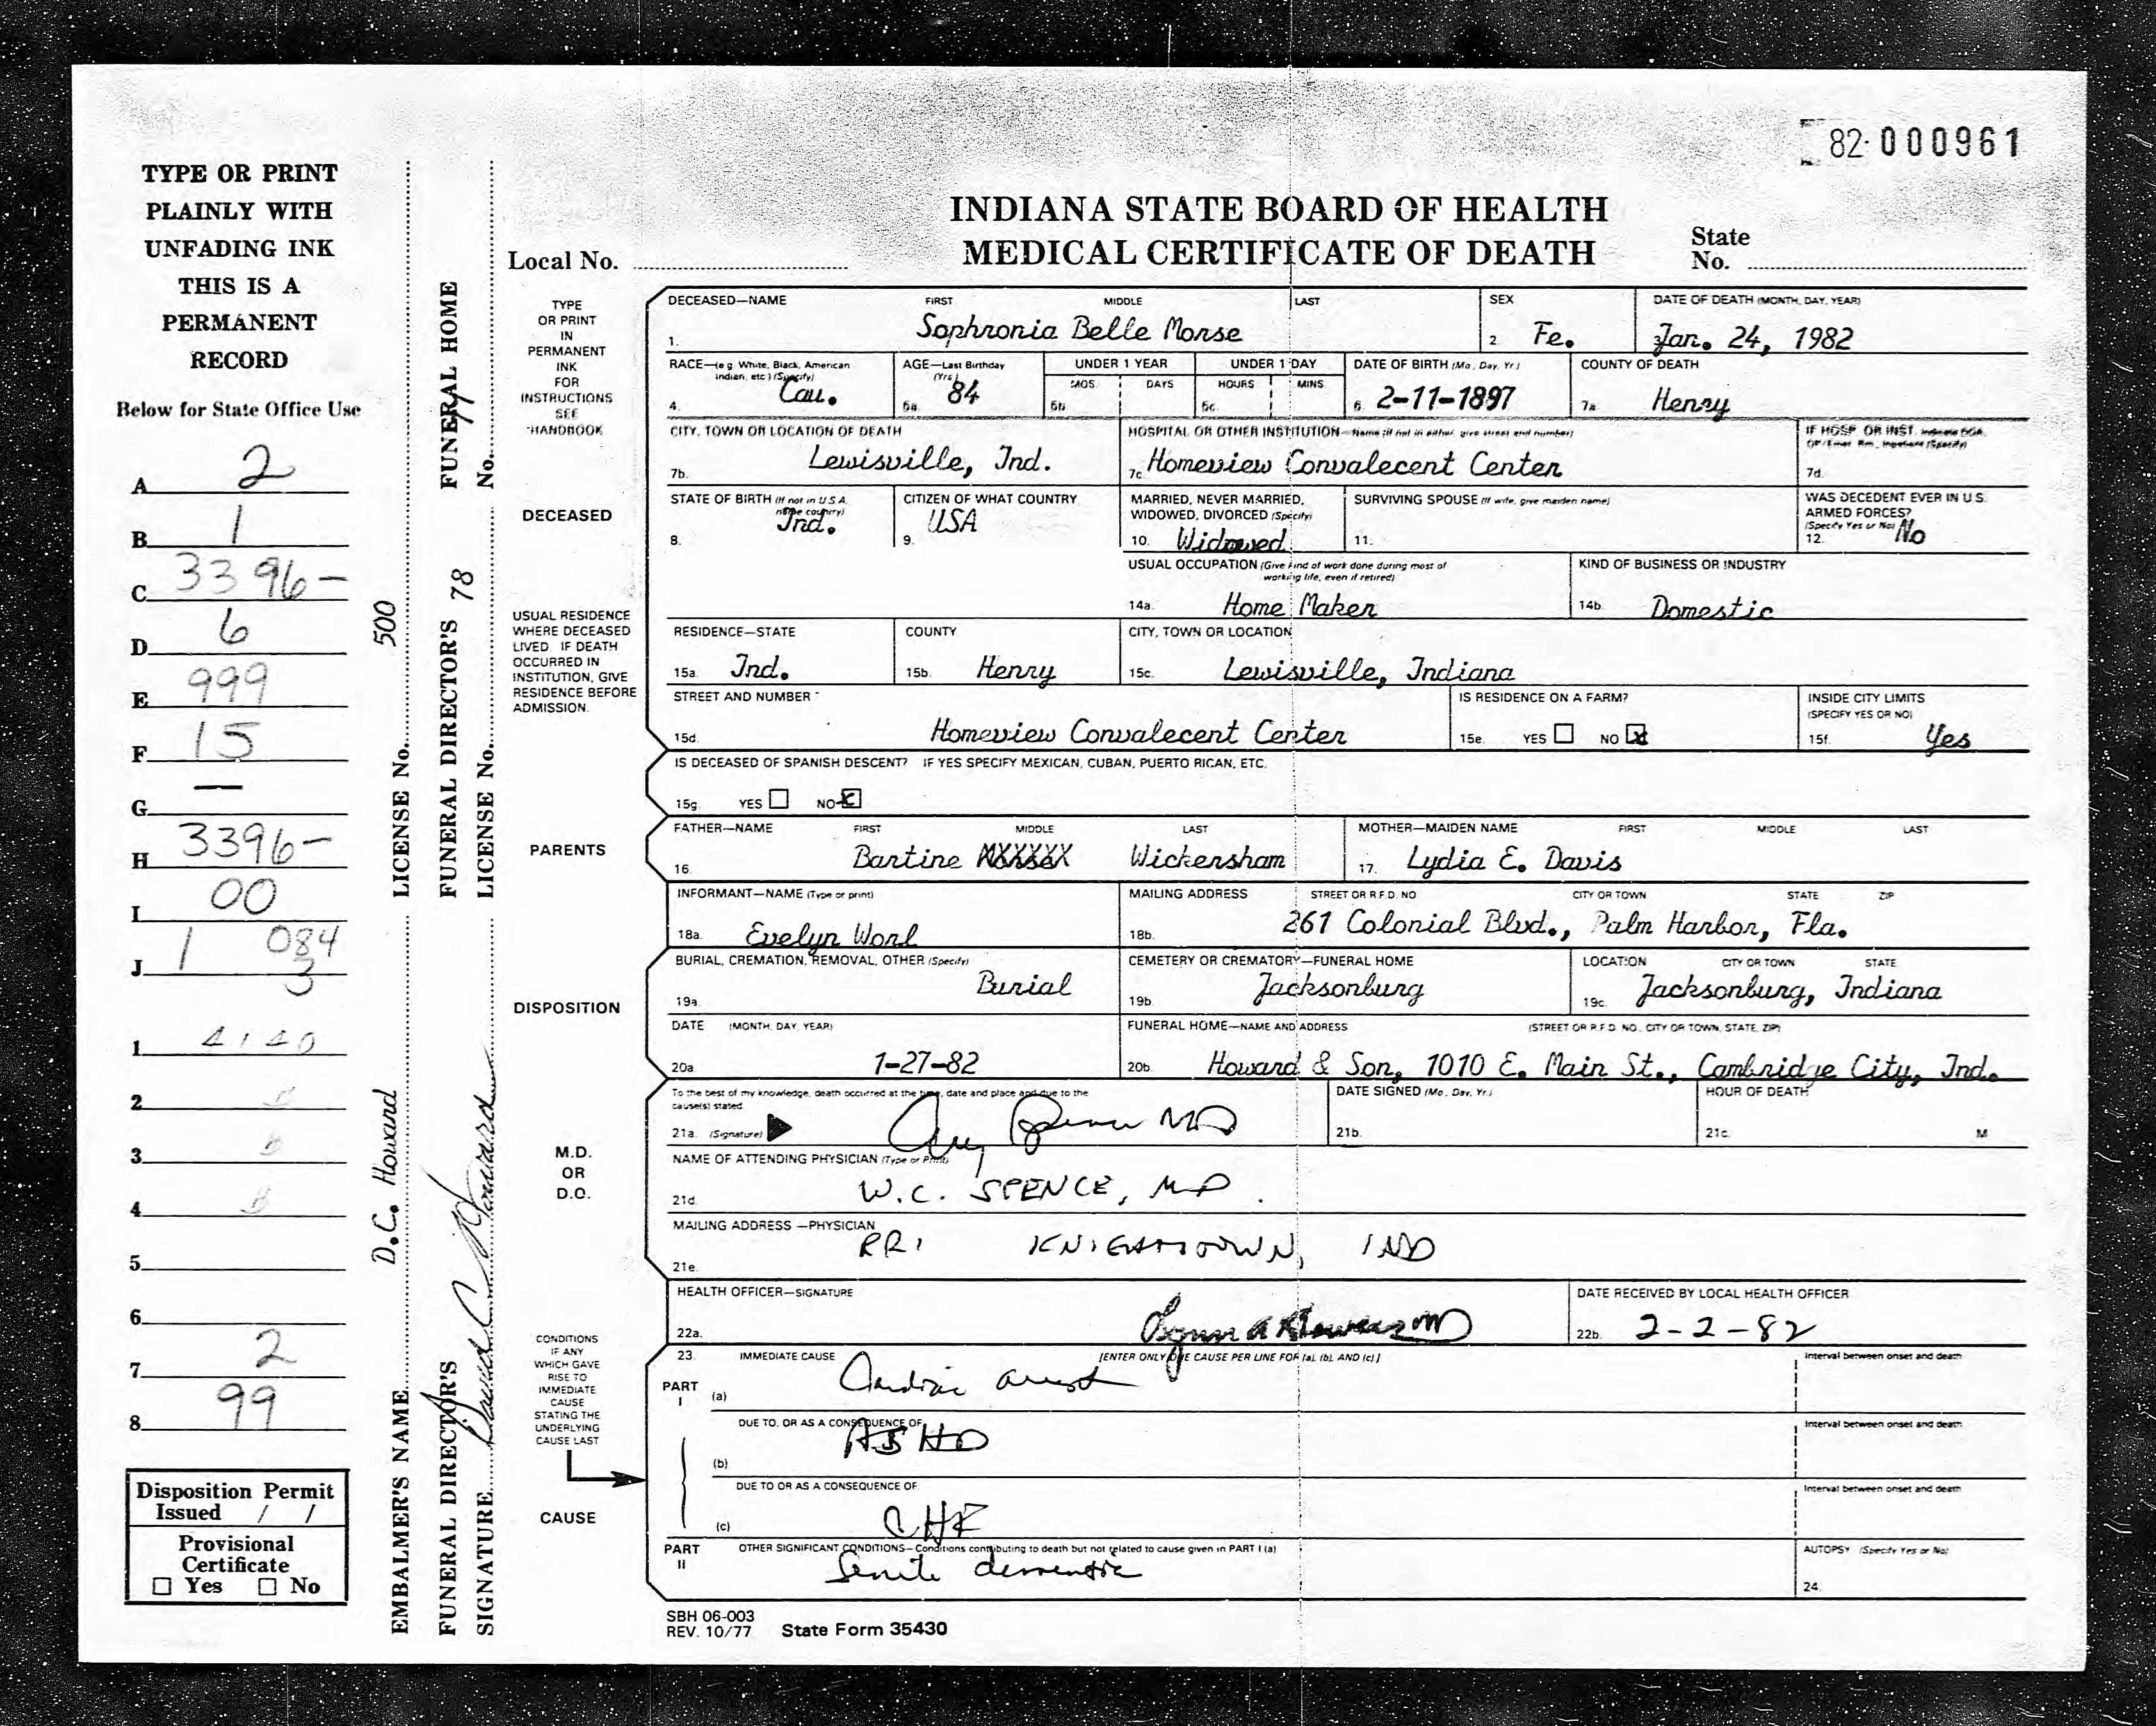 82-000961
TYPE OR PRINT
PLAINLY WITH
UNFADING INK
THIS IS A
PERMANENT
RECORD
Below for State Office Use
A 2
B 1
C 3396-
D 6
E 999
F 15
G —
H 3396-
I 00
J 1 084
3
1
2
3
4
5
6
7 2
8 99
Disposition Permit
Issued / /
Provisional
Certificate
☐ Yes ☐ No
EMBALMER'S NAME D.C. Howard LICENSE No. 500
FUNERAL DIRECTOR'S SIGNATURE David C Howard FUNERAL DIRECTOR'S LICENSE No. 78
FUNERAL HOME No. 77
INDIANA STATE BOARD OF HEALTH
MEDICAL CERTIFICATE OF DEATH
Local No.
State
No.
TYPE
OR PRINT
IN
PERMANENT
INK
FOR
INSTRUCTIONS
SEE
HANDBOOK
DECEASED—NAME FIRST MIDDLE LAST
1. Sophronia Belle Morse
SEX
2. Fe.
DATE OF DEATH (MONTH, DAY, YEAR)
3. Jan. 24, 1982
RACE—(e.g. White, Black, American
Indian, etc.) (Specify)
4. Cau.
AGE—Last Birthday
(Yrs.)
5a. 84
UNDER 1 YEAR
MOS. DAYS
5b.
UNDER 1 DAY
HOURS MINS.
5c.
DATE OF BIRTH (Mo., Day, Yr.)
6. 2-11-1897
COUNTY OF DEATH
7a. Henry
CITY, TOWN OR LOCATION OF DEATH
7b. Lewisville, Ind.
HOSPITAL OR OTHER INSTITUTION—Name (If not in either, give street and number)
7c. Homeview Convalecent Center
IF HOSP. OR INST. Indicate DOA,
OP/Emer. Rm., Inpatient (Specify)
7d.
DECEASED
STATE OF BIRTH (If not in U.S.A.
name country)
8. Ind.
CITIZEN OF WHAT COUNTRY
9. USA
MARRIED, NEVER MARRIED,
WIDOWED, DIVORCED (Specify)
10. Widowed
SURVIVING SPOUSE (If wife, give maiden name)
11.
WAS DECEDENT EVER IN U.S.
ARMED FORCES?
(Specify Yes or No)
12. No
USUAL OCCUPATION (Give kind of work done during most of
working life, even if retired)
14a. Home Maker
KIND OF BUSINESS OR INDUSTRY
14b. Domestic
USUAL RESIDENCE
WHERE DECEASED
LIVED. IF DEATH
OCCURRED IN
INSTITUTION, GIVE
RESIDENCE BEFORE
ADMISSION.
RESIDENCE—STATE
15a. Ind.
COUNTY
15b. Henry
CITY, TOWN OR LOCATION
15c. Lewisville, Indiana
STREET AND NUMBER
15d. Homeview Convalecent Center
IS RESIDENCE ON A FARM?
15e. YES ☐ NO ☒
INSIDE CITY LIMITS
(SPECIFY YES OR NO)
15f. Yes
IS DECEASED OF SPANISH DESCENT? IF YES SPECIFY MEXICAN, CUBAN, PUERTO RICAN, ETC.
15g. YES ☐ NO ☒
PARENTS
FATHER—NAME FIRST MIDDLE LAST
16. Bantine Wickersham
MOTHER—MAIDEN NAME FIRST MIDDLE LAST
17. Lydia E. Davis
INFORMANT—NAME (Type or print)
18a. Evelyn Worl
MAILING ADDRESS STREET OR R.F.D. NO CITY OR TOWN STATE ZIP
18b. 261 Colonial Blvd., Palm Harbor, Fla.
DISPOSITION
BURIAL, CREMATION, REMOVAL, OTHER (Specify)
19a. Burial
CEMETERY OR CREMATORY—FUNERAL HOME
19b. Jacksonburg
LOCATION CITY OR TOWN STATE
19c. Jacksonburg, Indiana
DATE (MONTH, DAY, YEAR)
20a. 1-27-82
FUNERAL HOME—NAME AND ADDRESS (STREET OR R.F.D. NO., CITY OR TOWN, STATE, ZIP)
20b. Howard & Son, 1010 E. Main St., Cambridge City, Ind.
M.D.
OR
D.O.
To the best of my knowledge, death occurred at the time, date and place and due to the
cause(s) stated
21a. (Signature) MD
DATE SIGNED (Mo., Day, Yr.)
21b.
HOUR OF DEATH
21c. M
NAME OF ATTENDING PHYSICIAN (Type or Print)
21d. W.C. SPENCE, MD.
MAILING ADDRESS—PHYSICIAN
21e. RR1 KNIGHTSTOWN, IND
HEALTH OFFICER—SIGNATURE
22a.
DATE RECEIVED BY LOCAL HEALTH OFFICER
22b. 2-2-82
CONDITIONS
IF ANY
WHICH GAVE
RISE TO
IMMEDIATE
CAUSE
STATING THE
UNDERLYING
CAUSE LAST
CAUSE
23. IMMEDIATE CAUSE [ENTER ONLY ONE CAUSE PER LINE FOR (a), (b), AND (c)]
PART I
(a) Cardiac arrest
Interval between onset and death
DUE TO, OR AS A CONSEQUENCE OF
(b) ASHD
Interval between onset and death
DUE TO OR AS A CONSEQUENCE OF
(c) CHF
Interval between onset and death
PART II
OTHER SIGNIFICANT CONDITIONS—Conditions contributing to death but not related to cause given in PART I (a)
Senile dementia
AUTOPSY (Specify Yes or No)
24.
SBH 06-003
REV. 10/77 State Form 35430